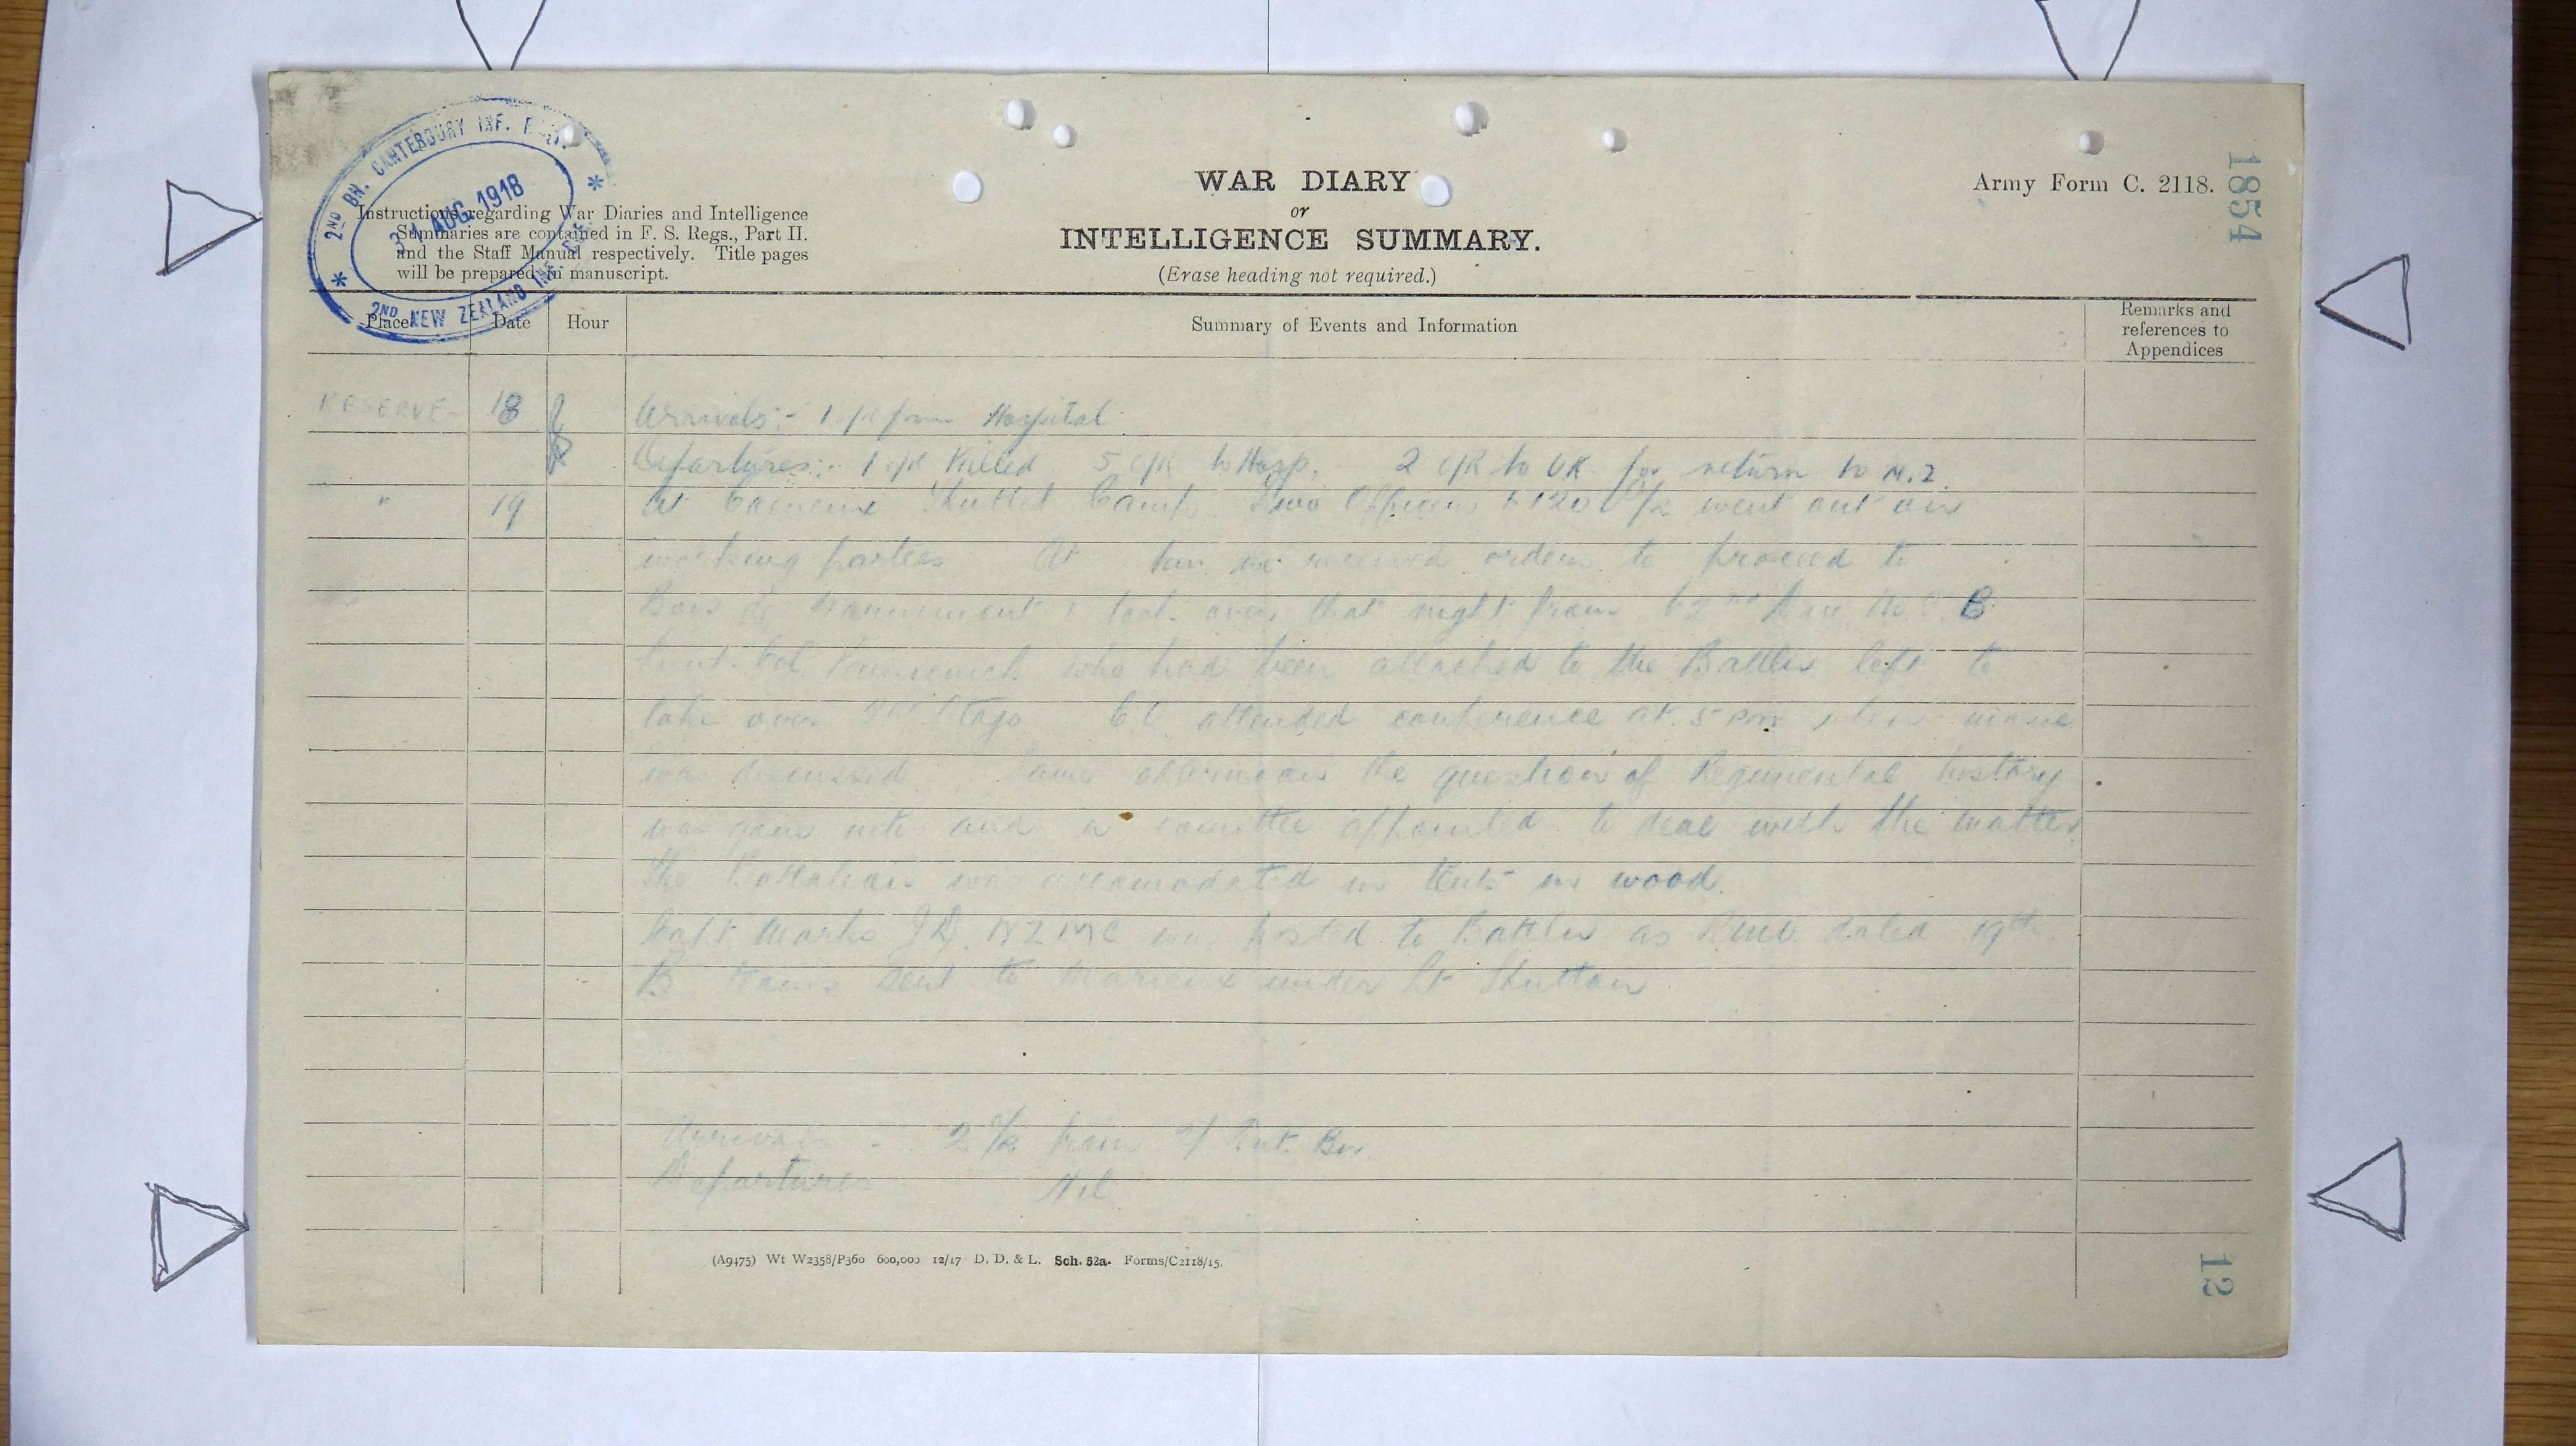 2ND BN. CANTERBURY INF.
31 AUG. 1918
2ND NEW ZEALAND INF.
1854
WAR DIARY
or
INTELLIGENCE SUMMARY.
(Erase heading not required.)
Army Form C. 2118.
Instructions regarding War Diaries and Intelligence
Summaries are contained in F. S. Regs., Part II.
and the Staff Manual respectively. Title pages
will be prepared in manuscript.
Place Date Hour Summary of Events and Information Remarks and
references to
Appendices
RESERVE 18 Arrivals:- 1 o/R from Hospital
Departures:- 1 o/R Killed 5 o/R to Hosp. 2 o/R to UK for return to N.Z.
" 19 At Camp Two Officers & 120 O/R went out on
working parties At we received orders to proceed to
Bois de & took over that night from 62nd B
Lieut. Col. who had been attached to the Battln left to
take over Otago CO attended conference at 5 pm when move
was discussed Same afternoon the question of Regimental history
was gone into and a committee appointed to deal with the matter
The Battalion was accomodated in tents in wood.
Capt Marks NZMC was posted to Battln as RMO dated 19th
B Teams sent to Marieux under Lt
Arrivals - 2 O/R from Ent. Bn
Departures Nil
(A9475) Wt W2358/P360 600,000 12/17 D. D. & L. Sch. 52a. Forms/C2118/15.
12